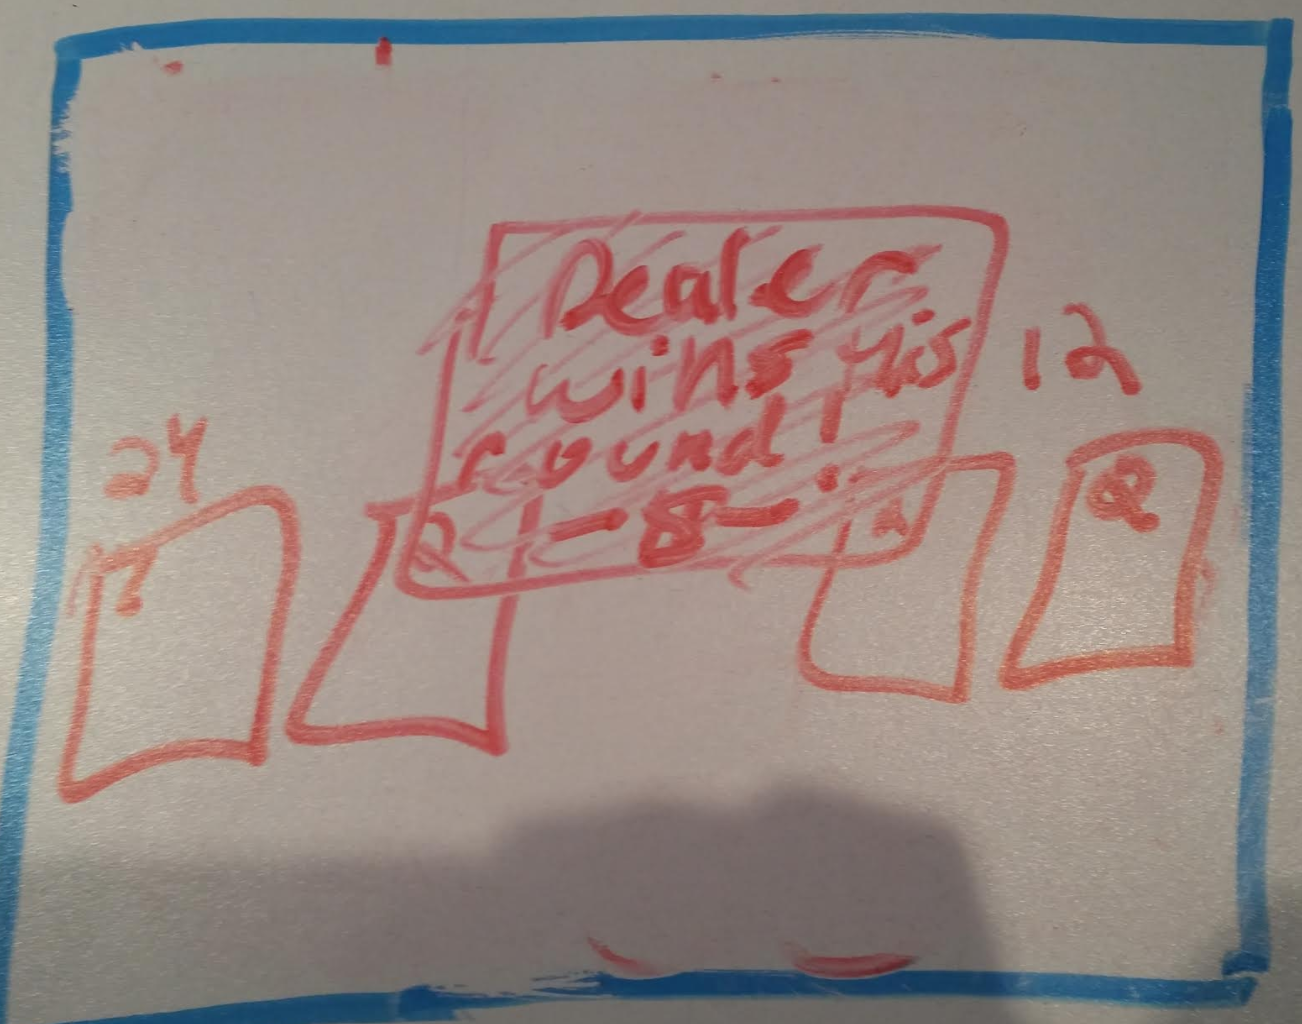 Dealer
wins this
round!
-8-
12
24
Q
2
Q